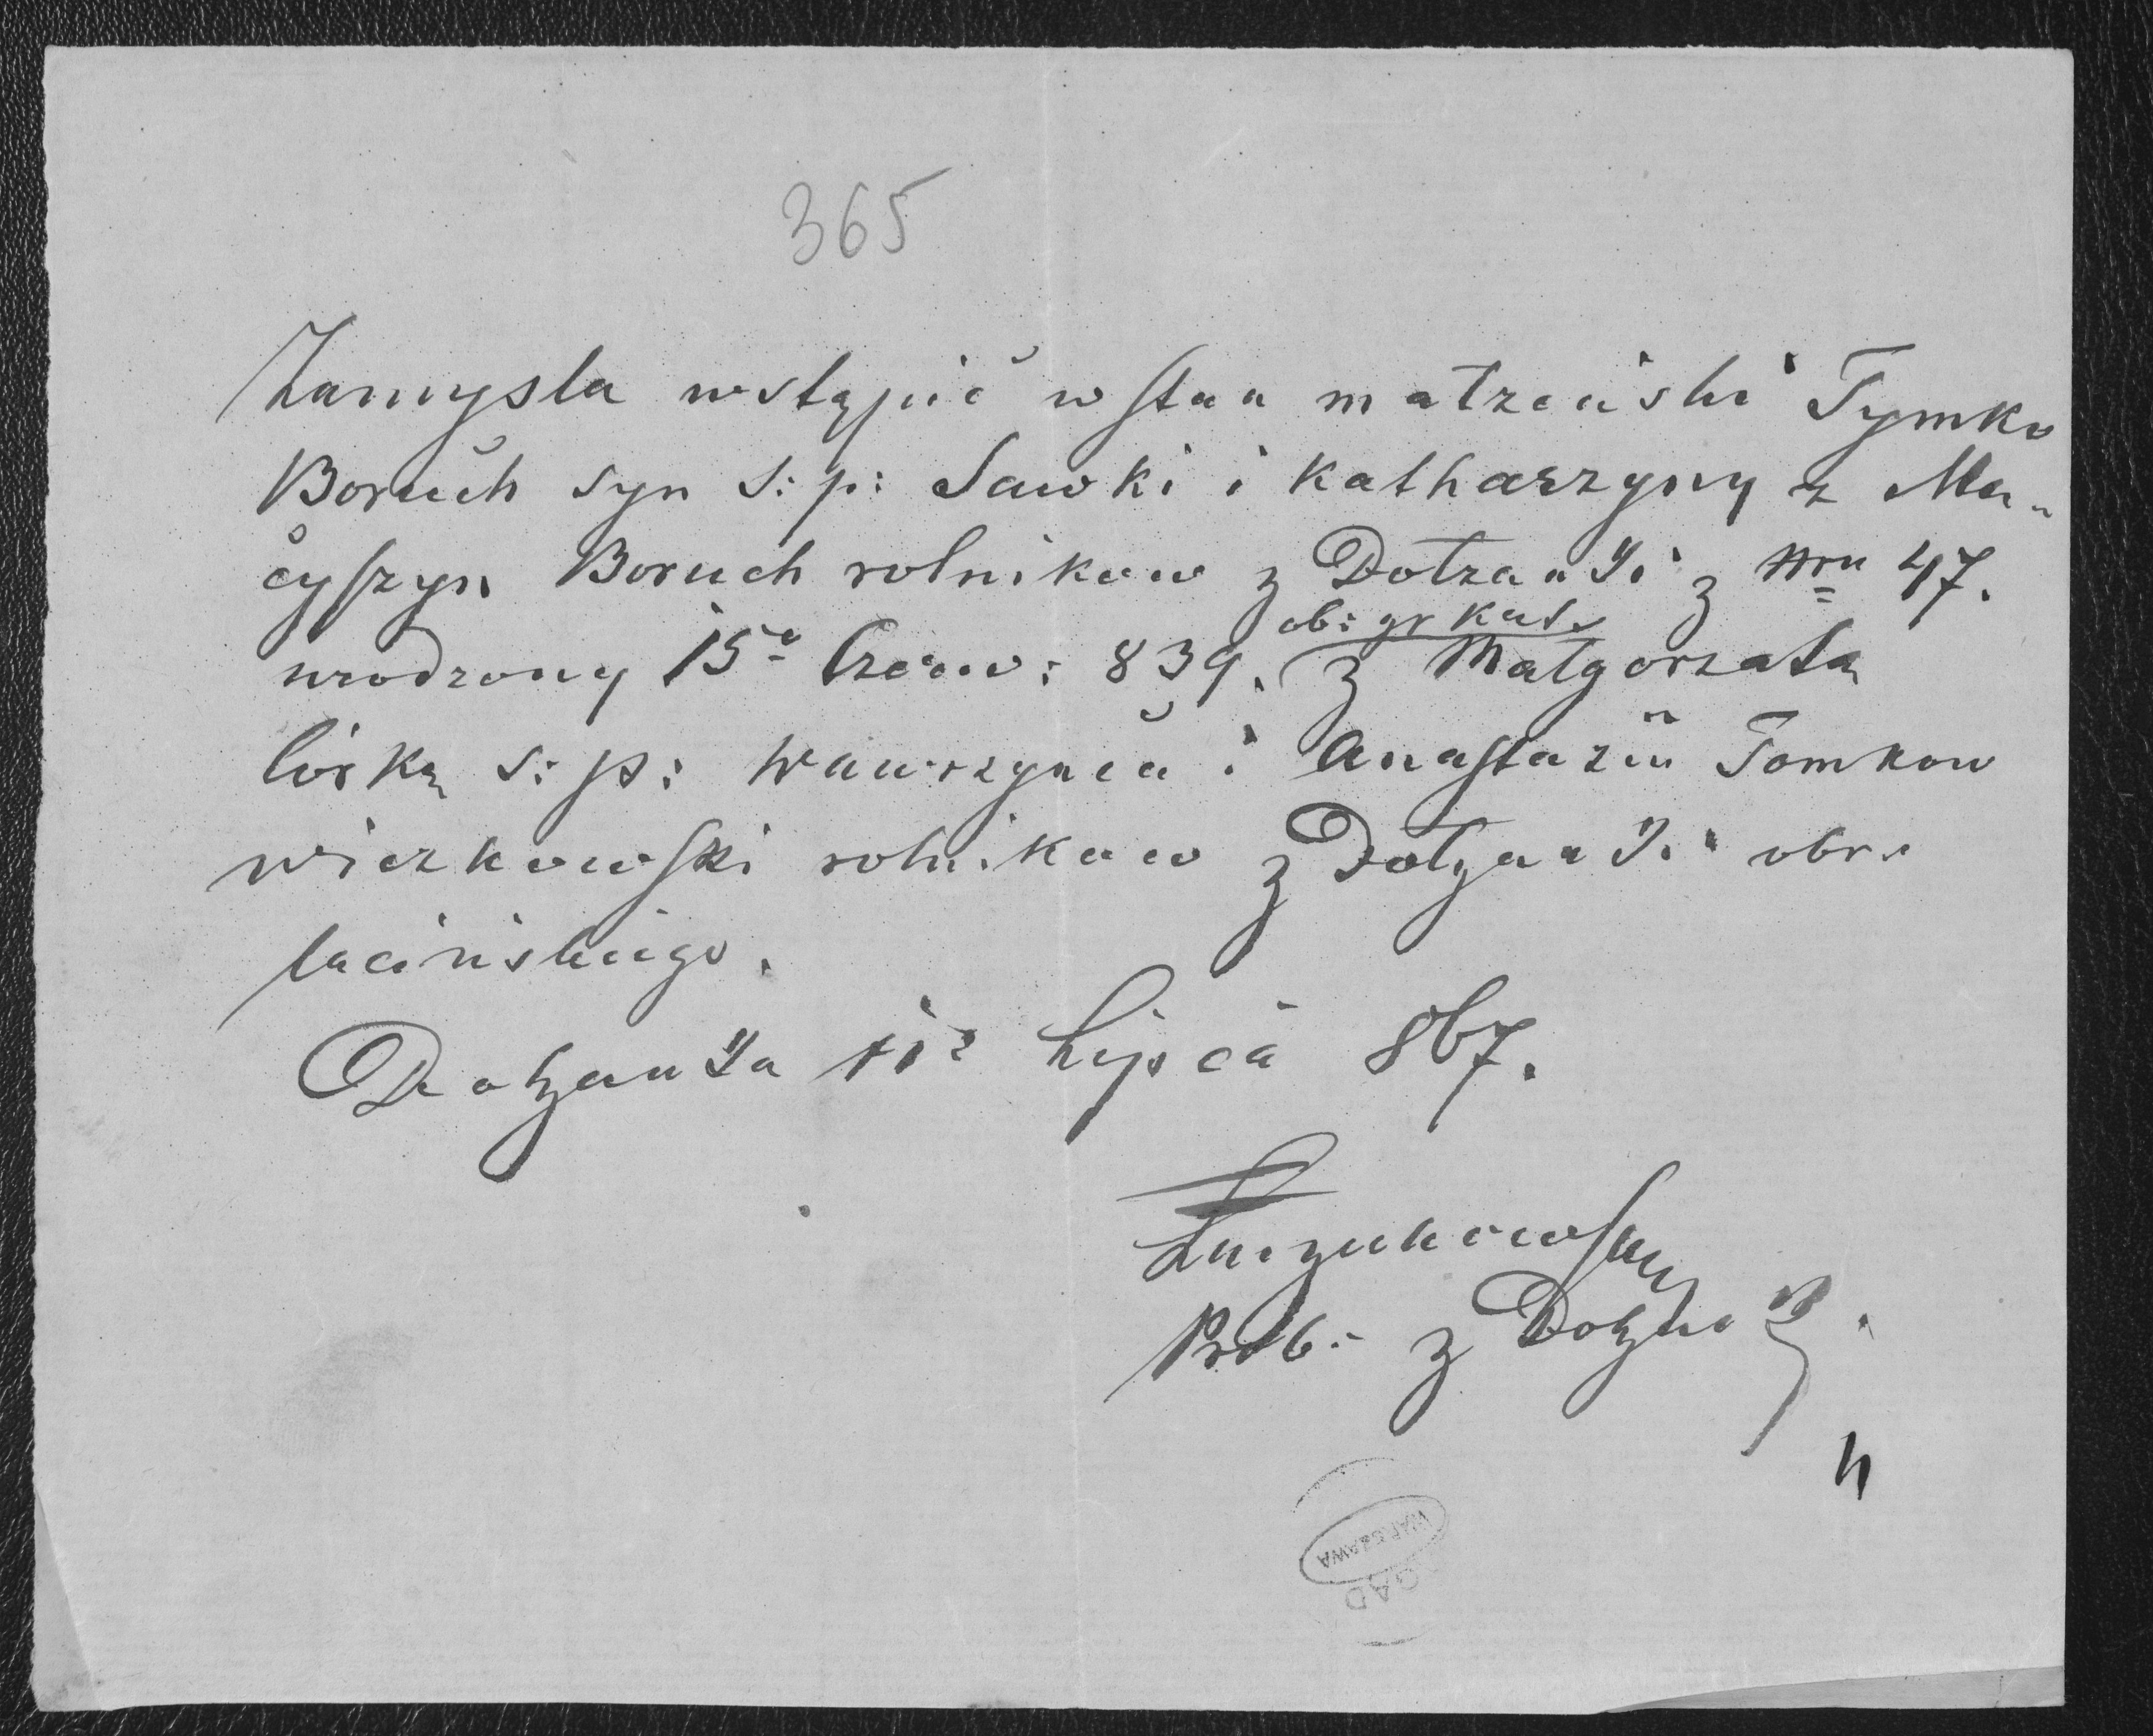 365
Zamysla wstąpić w stan małzeński Tymko
Boruch syn s: p: Sawki i Katharzyny z Ma-
cyszyn Boruch rolników z Dołzanki z Nru 47.
urodzony 15º Czerw: 839. ob: gr kat. z Małgorzatą
Córką s: p: Wawrzyńca i Anastazii Tomkow
rolników z Dołzanki obr.
łacińskiego.
Dołzanka Lipca 867.
Prob: z Dołzanki.
GAD
WARSZAWA